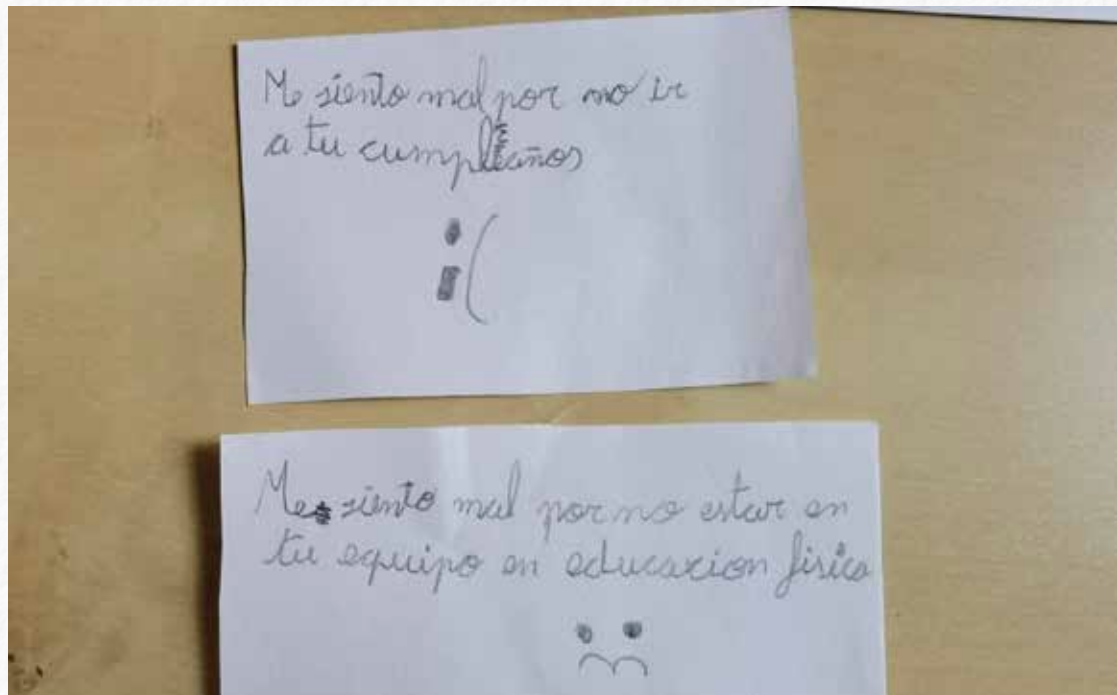 Me siento mal por no ir
a tu cumpleaños
:(
Me siento mal por no estar en
tu equipo en educacion fisica